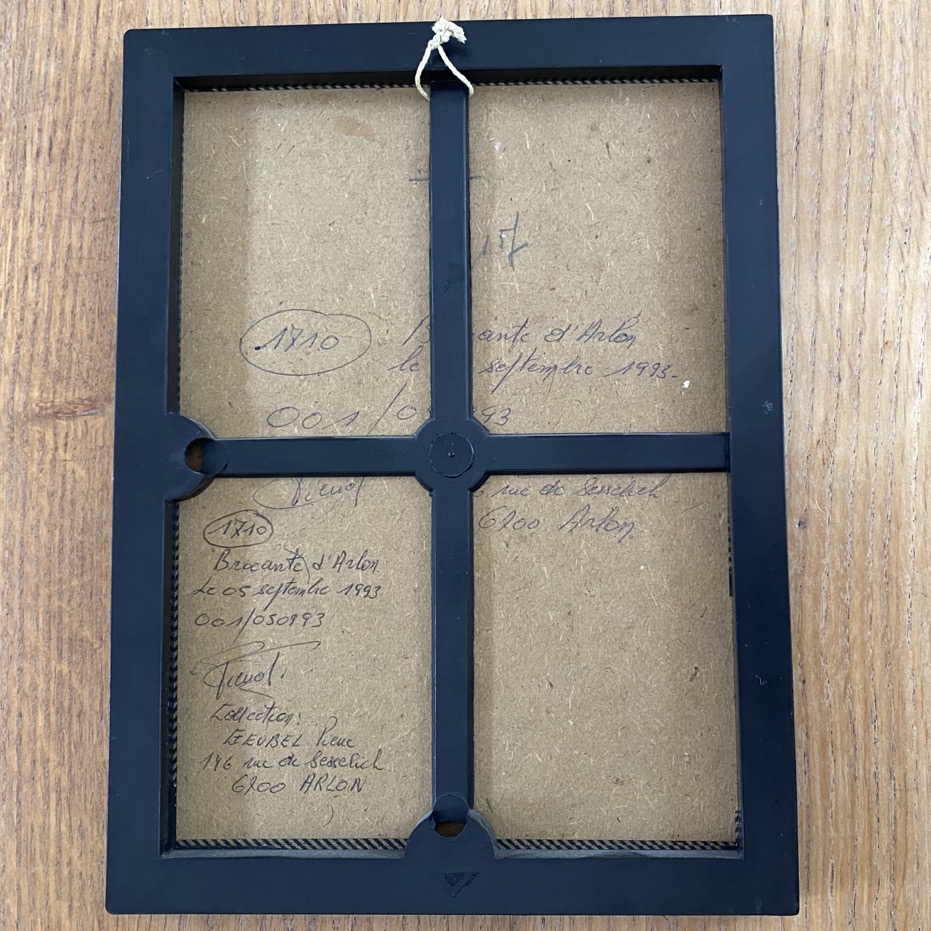 157
1710
B ante d'Arlon
le septembre 1993-
001/0 93
rue de Sesselich
6700 Arlon
1710
Brocante d'Arlon
Le 05 septembre 1993
001/050993
Collection:
GEUBEL Pierre
146 rue de Sesselich
6700 ARLON